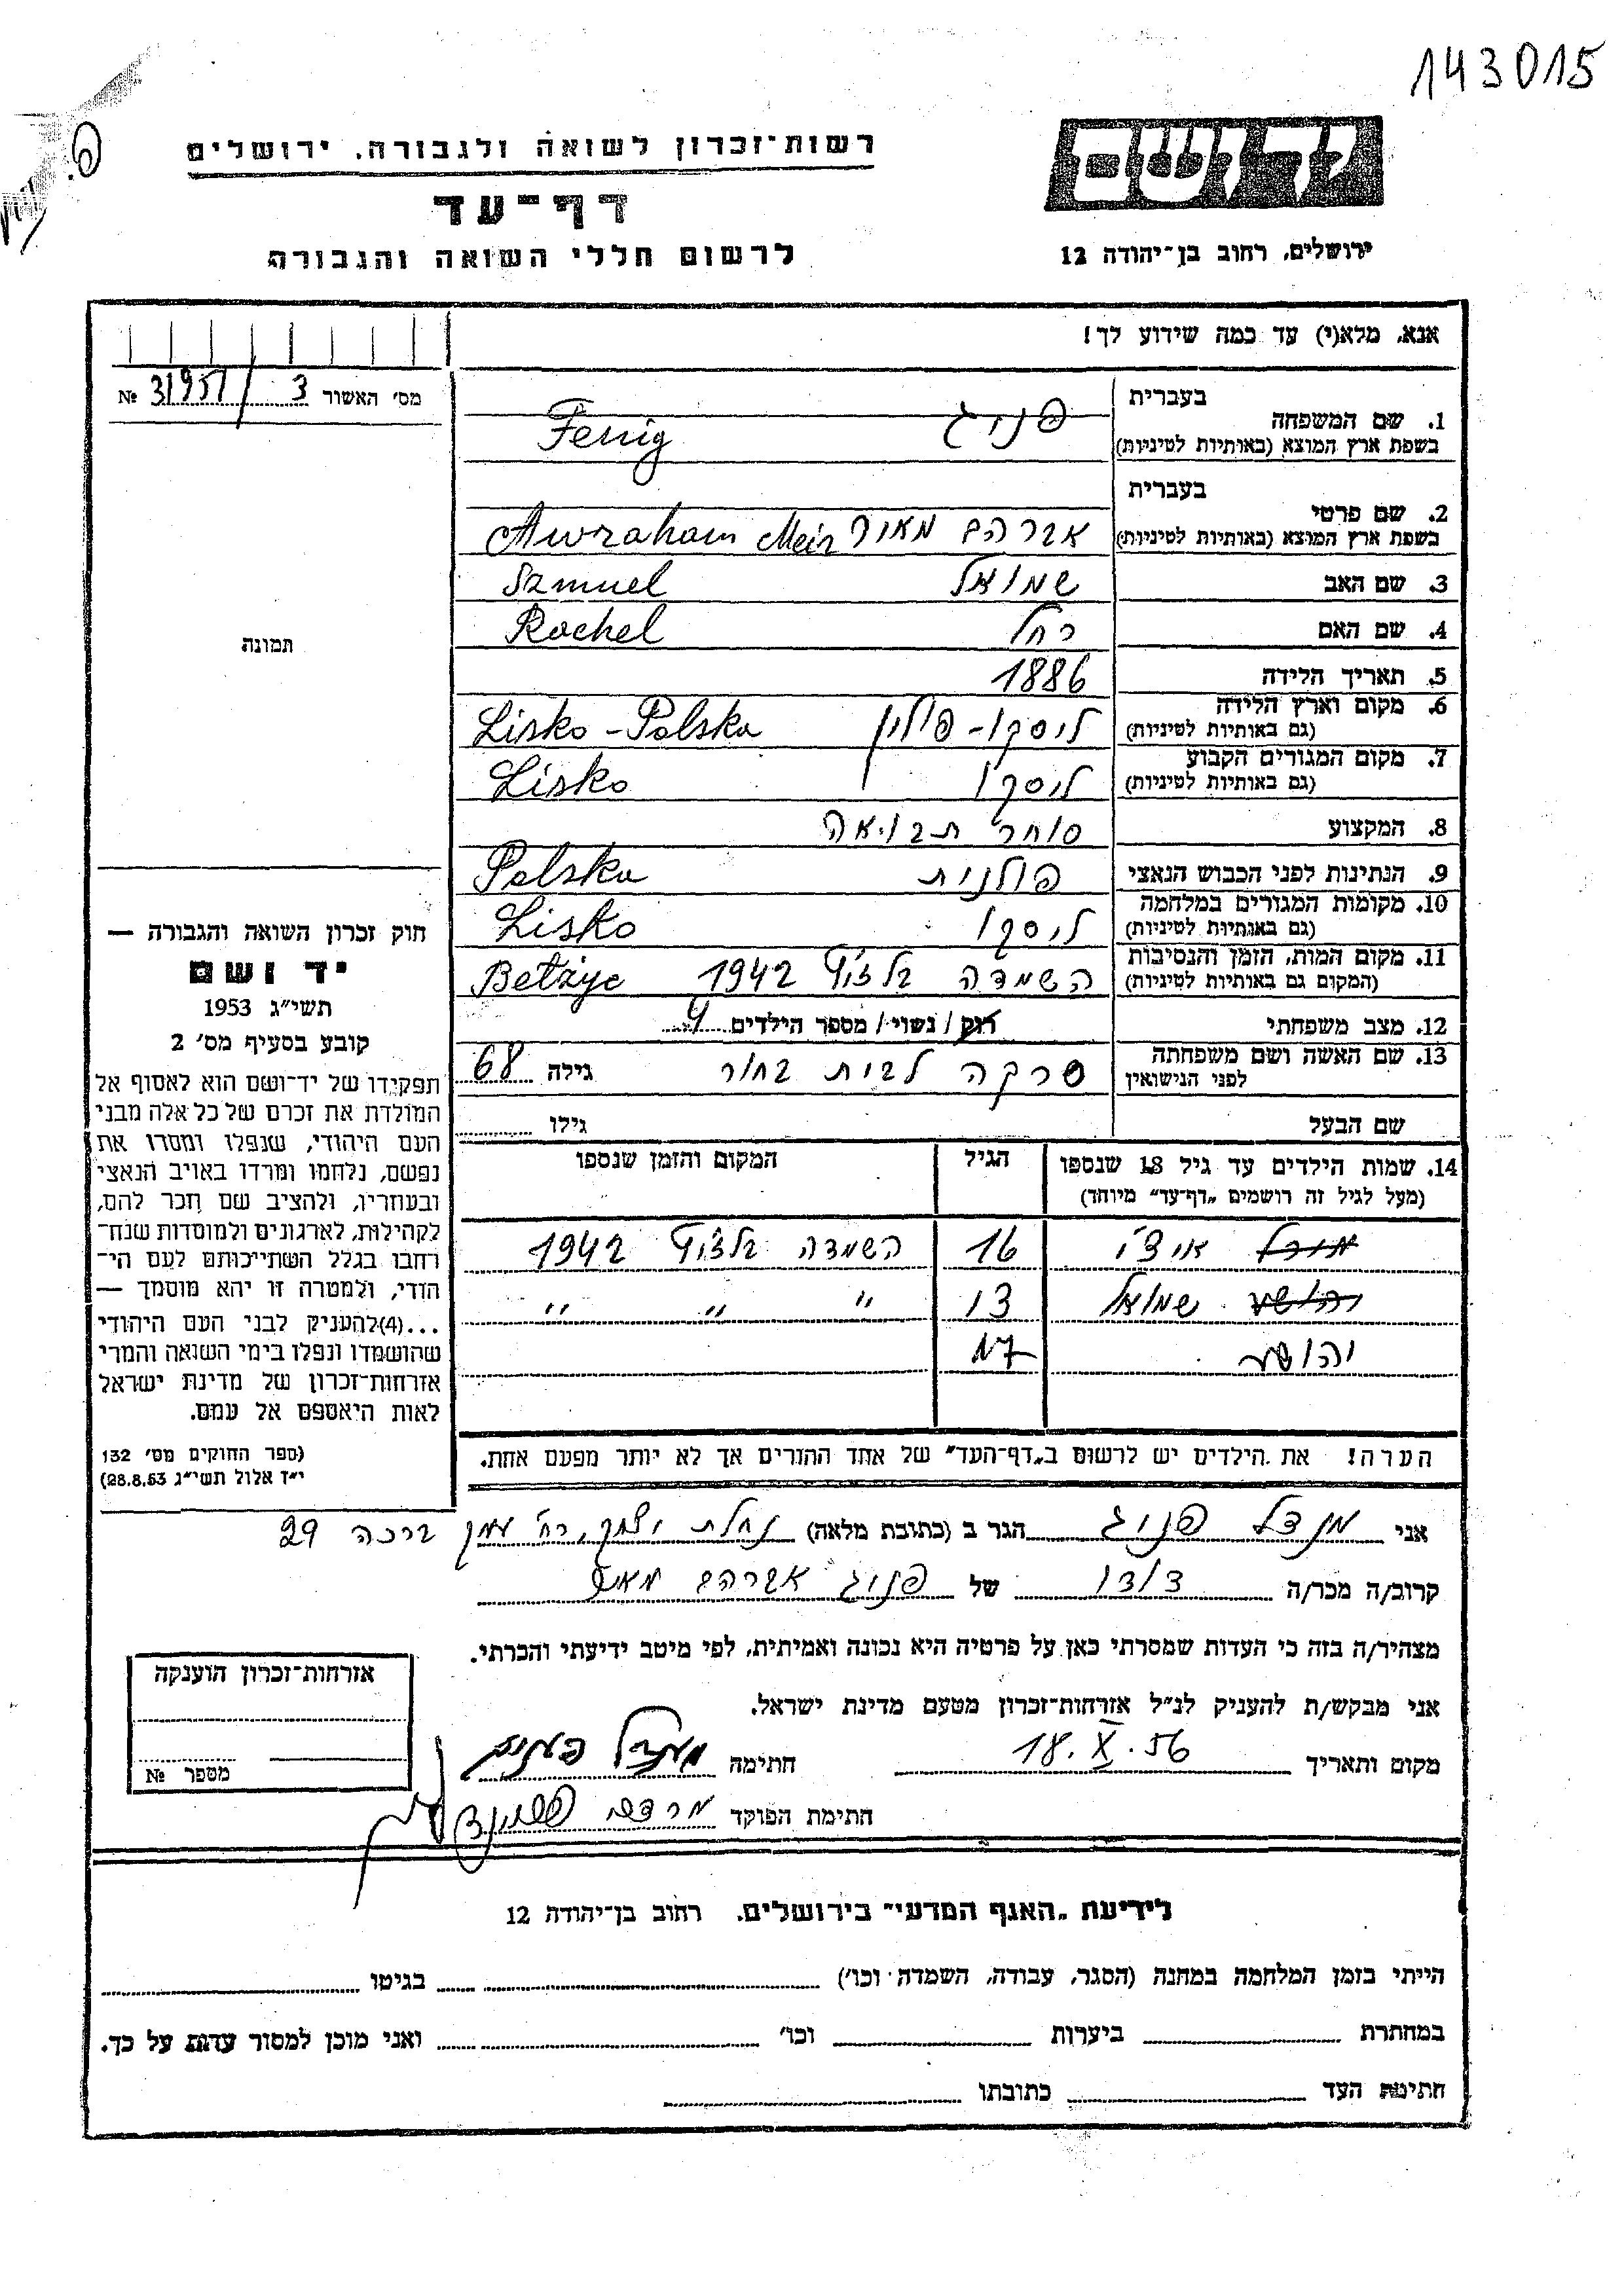 143015
רשות־זכרון לשואה ולגבורה, ירושלים
דף־עד
לרשום חללי השואה והגבורה
יד ושם
ירושלים, רחוב בן־יהודה 12
אנא, מלא(י) עד כמה שידוע לך!
מס׳ האשור 3 / 31951 №
בעברית
1. שם המשפחה פניג Fenig
בשפת ארץ המוצא (באותיות לטיניות)
בעברית
2. שם פרטי
בשפת ארץ המוצא (באותיות לטיניות) אברהם מאיר Awraham Meir
3. שם האב שמואל Szmuel
4. שם האם רחל Rachel
תמונה
5. תאריך הלידה 1886
6. מקום וארץ הלידה ליסקו - פולין Lisko - Polska
(גם באותיות לטיניות)
7. מקום המגורים הקבוע ליסקו Lisko
(גם באותיות לטיניות)
8. המקצוע סוחר תבואה
9. הנתינות לפני הכבוש הנאצי פולנית Polska
10. מקומות המגורים במלחמה ליסקו Lisko
(גם באותיות לטיניות)
11. מקום המות, הזמן והנסיבות השמדה בלז׳יץ 1942 Betżyc
(המקום גם באותיות לטיניות)
12. מצב משפחתי רוק / נשוי / מספר הילדים 4
13. שם האשה ושם משפחתה שרקה לבית בחור גילה 68
לפני הנישואין
שם הבעל גילו
14. שמות הילדים עד גיל 18 שנספו הגיל המקום והזמן שנספו
(מעל לגיל זה רושמים „דף־עד״ מיוחד)
איצ׳י 16 השמדה בלז׳יץ 1942
יהושע שמואל 13 " " "
יהושע 17
הערה! את הילדים יש לרשום ב„דף־העד״ של אחד ההורים אך לא יותר מפעם אחת.
חוק זכרון השואה והגבורה —
יד ושם
תשי״ג 1953
קובע בסעיף מס׳ 2
תפקידו של יד־ושם הוא לאסוף אל
המולדת את זכרם של כל אלה מבני
העם היהודי, שנפלו ומסרו את
נפשם, נלחמו ומרדו באויב הנאצי
ובעוזריו, ולהציב שם וזכר להם,
לקהילות, לארגונים ולמוסדות שנח־
רחבו בגלל השתייכותם לעם הי־
הודי, ולמטרה זו יהא מוסמך —
...(4) להעניק לבני העם היהודי
שהושמדו ונפלו בימי השואה והמרי
אזרחות־זכרון של מדינת ישראל
לאות היאספם אל עמם.
(ספר החוקים מס׳ 132
י״ד אלול תשי״ג 28.8.53)
אני מנדל פניג הגר ב (כתובת מלאה) נחלת יצחק, רח׳ עמק ברכה 29
קרוב/ה מכר/ה דודו של פניג אברהם מאיר
מצהיר/ה בזה כי העדות שמסרתי כאן על פרטיה היא נכונה ואמיתית, לפי מיטב ידיעתי והכרתי.
אני מבקש/ת להעניק לנ״ל אזרחות־זכרון מטעם מדינת ישראל.
מקום ותאריך 18.X.56 חתימה מנדל פעניג
חתימת הפוקד מרדכי
אזרחות־זכרון הוענקה
מספר №
לידיעת „האגף המדעי״ בירושלים, רחוב בן־יהודה 12
הייתי בזמן המלחמה במחנה (הסגר, עבודה, השמדה וכו׳) בגיטו
במחתרת ביערות וכו׳ ואני מוכן למסור עדות על כך.
חתימת העד כתובתו